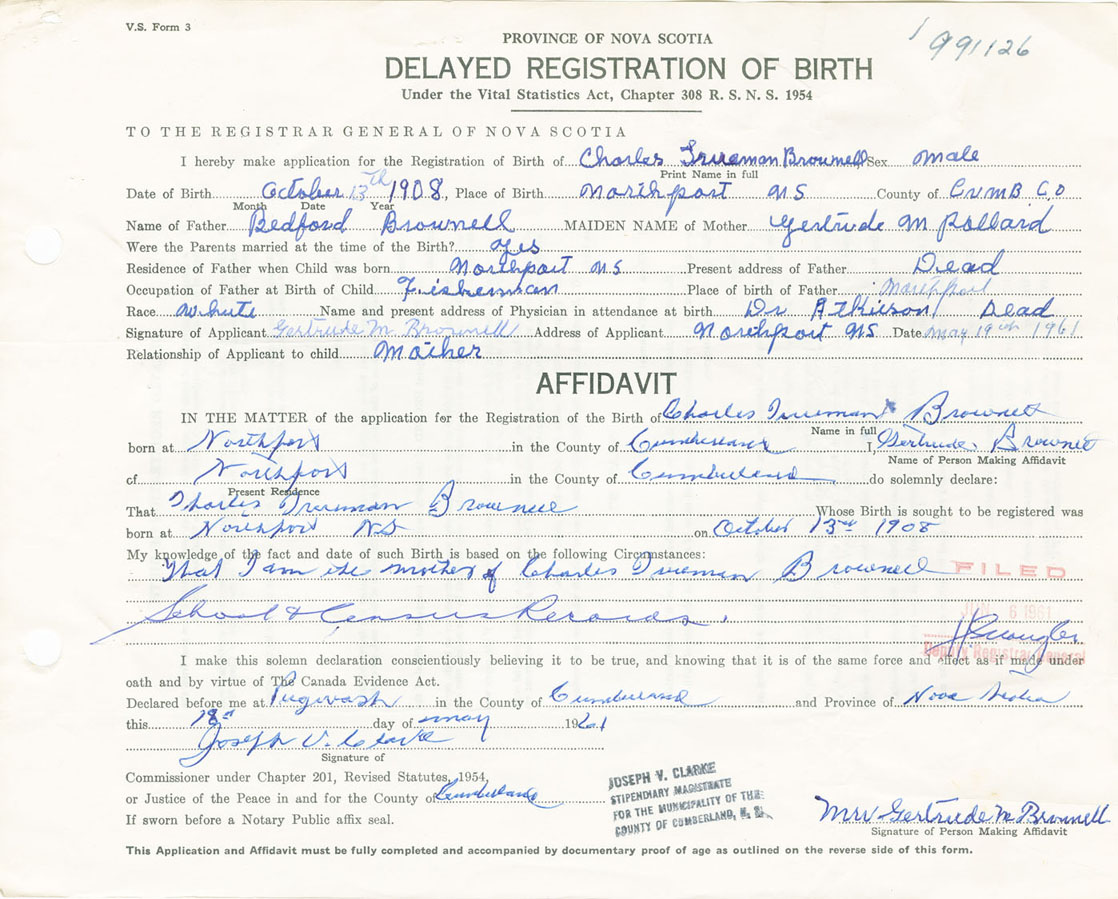 V.S. Form 3
991126
PROVINCE OF NOVA SCOTIA
DELAYED REGISTRATION OF BIRTH
Under the Vital Statistics Act, Chapter 308 R. S. N. S. 1954
TO THE REGISTRAR GENERAL OF NOVA SCOTIA
I hereby make application for the Registration of Birth of Charles Trueman Brownell Sex male
Print Name in full
Date of Birth October 13th 1908, Place of Birth Northport NS County of CumB. CO
Month Date Year
Name of Father Bedford Brownell MAIDEN NAME of Mother Gertrude M Pollard
Were the Parents married at the time of the Birth? yes
Residence of Father when Child was born Northport NS Present address of Father Dead
Occupation of Father at Birth of Child Fisherman Place of birth of Father Northport
Race White Name and present address of Physician in attendance at birth Dr Atkinson Dead
Signature of Applicant Gertrude M. Brownell Address of Applicant Northport NS Date May 19th 1961
Relationship of Applicant to child Mother
AFFIDAVIT
IN THE MATTER of the application for the Registration of the Birth of Charles Trueman Brownell
Name in full
born at Northport in the County of Cumberland I, Gertrude Brownell
Name of Person Making Affidavit
of Northport in the County of Cumberland do solemnly declare:
Present Residence
That Charles Trueman Brownell Whose Birth is sought to be registered was
born at Northport NS on October 13rd 1908
My knowledge of the fact and date of such Birth is based on the following Circumstances:
That I am the mother of Charles Trueman Brownell
FILED
School & Census Records.
JUN 6 1961
Deputy Registrar General
I make this solemn declaration conscientiously believing it to be true, and knowing that it is of the same force and effect as if made under
oath and by virtue of The Canada Evidence Act.
Declared before me at Pugwash in the County of Cumberland and Province of Nova Scotia
this 18th day of May 1961
Joseph V. Clarke
Signature of
Commissioner under Chapter 201, Revised Statutes, 1954,
or Justice of the Peace in and for the County of Cumberland
If sworn before a Notary Public affix seal.
JOSEPH V. CLARKE
STIPENDIARY MAGISTRATE
FOR THE MUNICIPALITY OF THE
COUNTY OF CUMBERLAND, N. S.
Mrs Gertrude M Brownell
Signature of Person Making Affidavit
This Application and Affidavit must be fully completed and accompanied by documentary proof of age as outlined on the reverse side of this form.